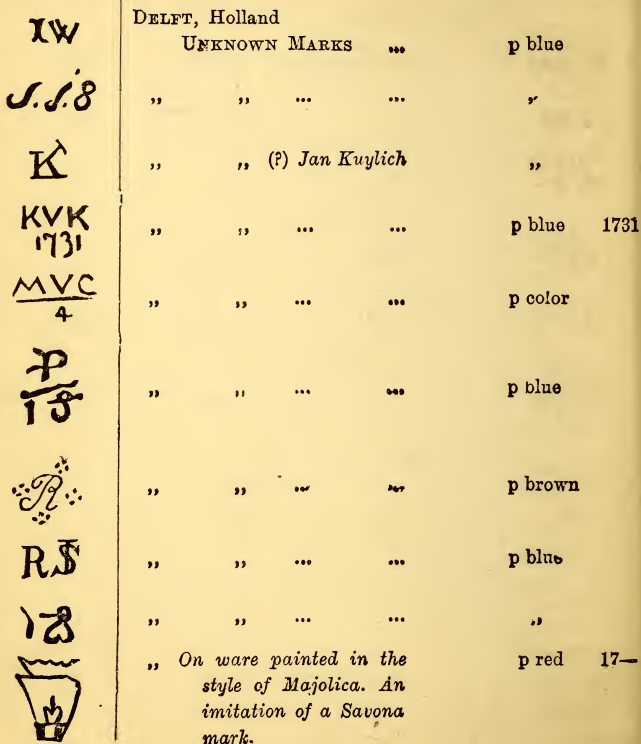 IW DELFT, Holland
UNKNOWN MARKS ... p blue
J.J.8 ,, ,, ... ... ,,
K ,, ,, (?) Jan Kuylich ,,
KVK
1731 ,, ,, ... ... p blue 1731
MVC
4 ,, ,, ... ... p color
P
18 ,, ,, ... ... p blue
R ,, ,, ... ... p brown
RS ,, ,, ... ... p blue
18 ,, ,, ... ... ,,
,, On ware painted in the p red 17—
style of Majolica. An
imitation of a Savona
mark.